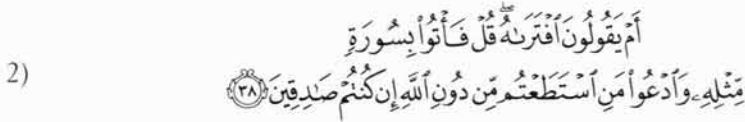 أَمْ يَقُولُونَ ٱفْتَرَىٰهُ ۖ قُلْ فَأْتُوا۟ بِسُورَةٍ
2) مِّثْلِهِۦ وَٱدْعُوا۟ مَنِ ٱسْتَطَعْتُم مِّن دُونِ ٱللَّهِ إِن كُنتُمْ صَٰدِقِينَ ﴿٣٨﴾